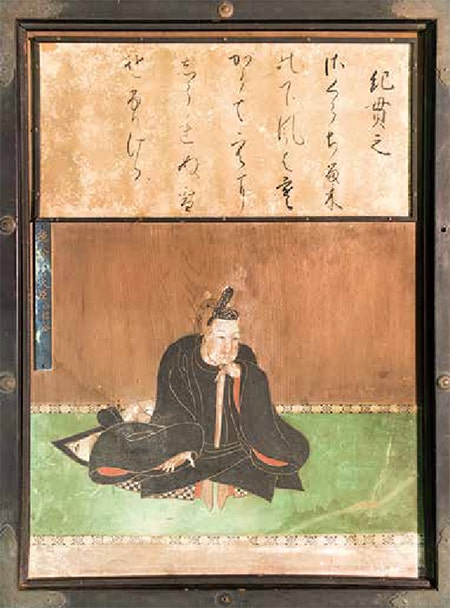 紀貫之
さくらちる木
の下風は寒
からて空に
しられぬ雪
そふりける